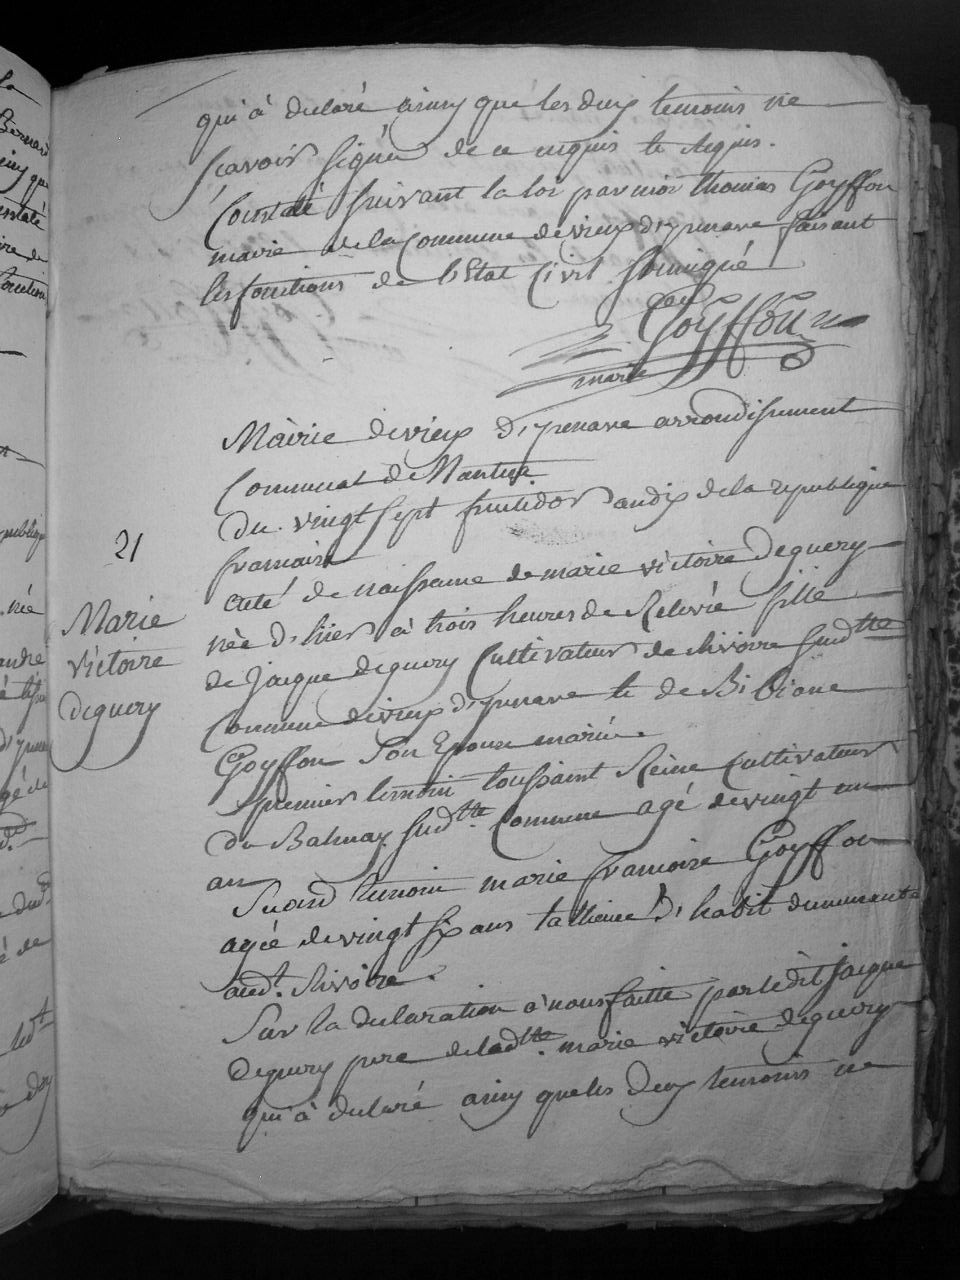 qui à declaré ainsy que les deux temoins ne
scavoir signer de ce enquis et requis.
Constaté suivant la loi par moi thomas Goyffon
maire de la Commune de vieux d'yzenave faisant
les fonctions de l'Etat Civil soussigné
Goyffon
maire
Mairie de vieux d'yzenave arrondissement
Communal de Nantua
du vingt sept fructidor an dix de la republique
francaise
acte de naissance de marie victoire deguery
née d'hier à trois heures de Relevée fille
de jacque deguery Cultivateur de chivoire susd.tte
Commune de vieux d'yzenave et de Bibiane
Goyffon son Epouse mariés.
premier temoin toussaint Reine Cultivateur
du Balmay susd.tte Commune agé de vingt un
an
Second temoin marie francoise Goyffon
agée de vingt six ans tallieuse d'habit demeurante
aud.t chivoire.
Sur la declaration à nous faitte par ledit jacque
deguery pere de lad.tte marie victoire deguery
qui à declaré ainsy que les deux temoins ne
21
Marie
victoire
deguery